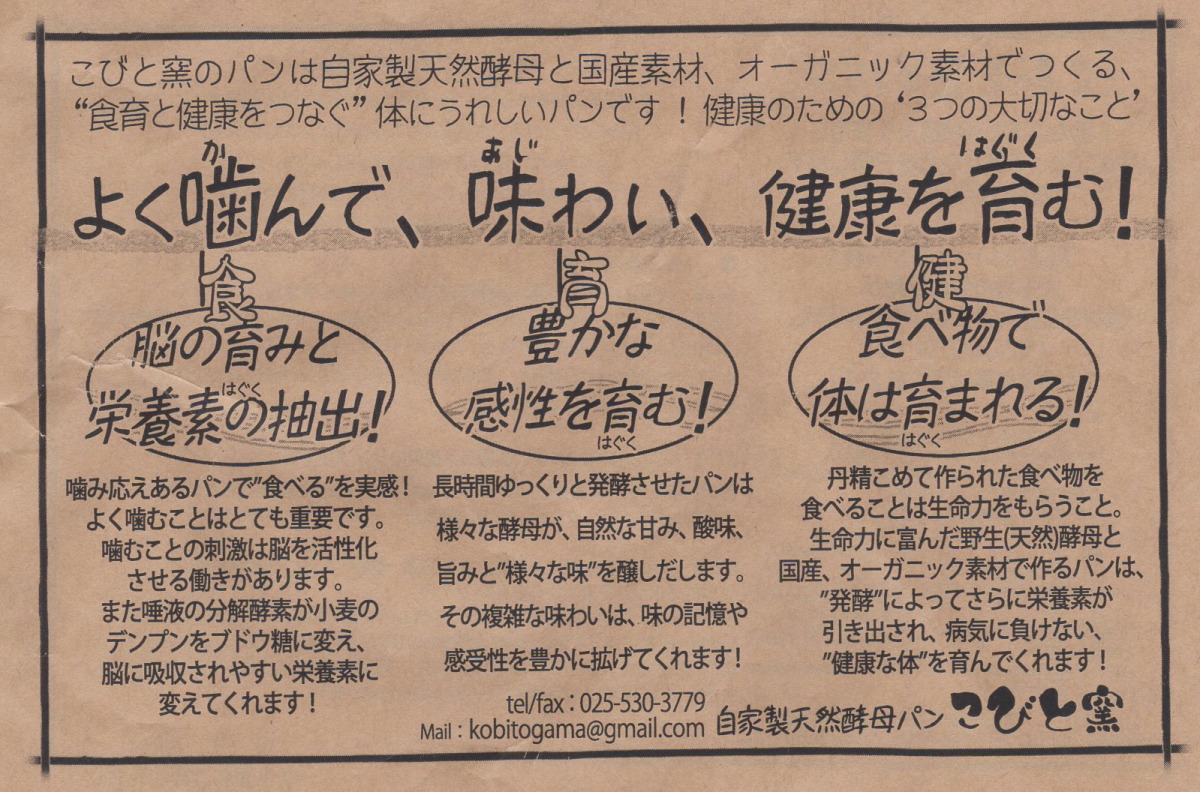 こびと窯のパンは自家製天然酵母と国産素材、オーガニック素材でつくる、
“食育と健康をつなぐ”体にうれしいパンです！健康のための‘３つの大切なこと’
か あじ はぐく
よく噛んで、味わい、健康を育む！
食
脳の育みと
はぐく
栄養素の抽出！
噛み応えあるパンで”食べる”を実感！
よく噛むことはとても重要です。
噛むことの刺激は脳を活性化
させる働きがあります。
また唾液の分解酵素が小麦の
デンプンをブドウ糖に変え、
脳に吸収されやすい栄養素に
変えてくれます！
育
豊かな
感性を育む！
はぐく
長時間ゆっくりと発酵させたパンは
様々な酵母が、自然な甘み、酸味、
旨みと”様々な味”を醸しだします。
その複雑な味わいは、味の記憶や
感受性を豊かに拡げてくれます！
健
食べ物で
体は育まれる！
はぐく
丹精こめて作られた食べ物を
食べることは生命力をもらうこと。
生命力に富んだ野生(天然)酵母と
国産、オーガニック素材で作るパンは、
”発酵”によってさらに栄養素が
引き出され、病気に負けない、
”健康な体”を育んでくれます！
tel/fax：025-530-3779
Mail：kobitogama@gmail.com
自家製天然酵母パン こびと窯